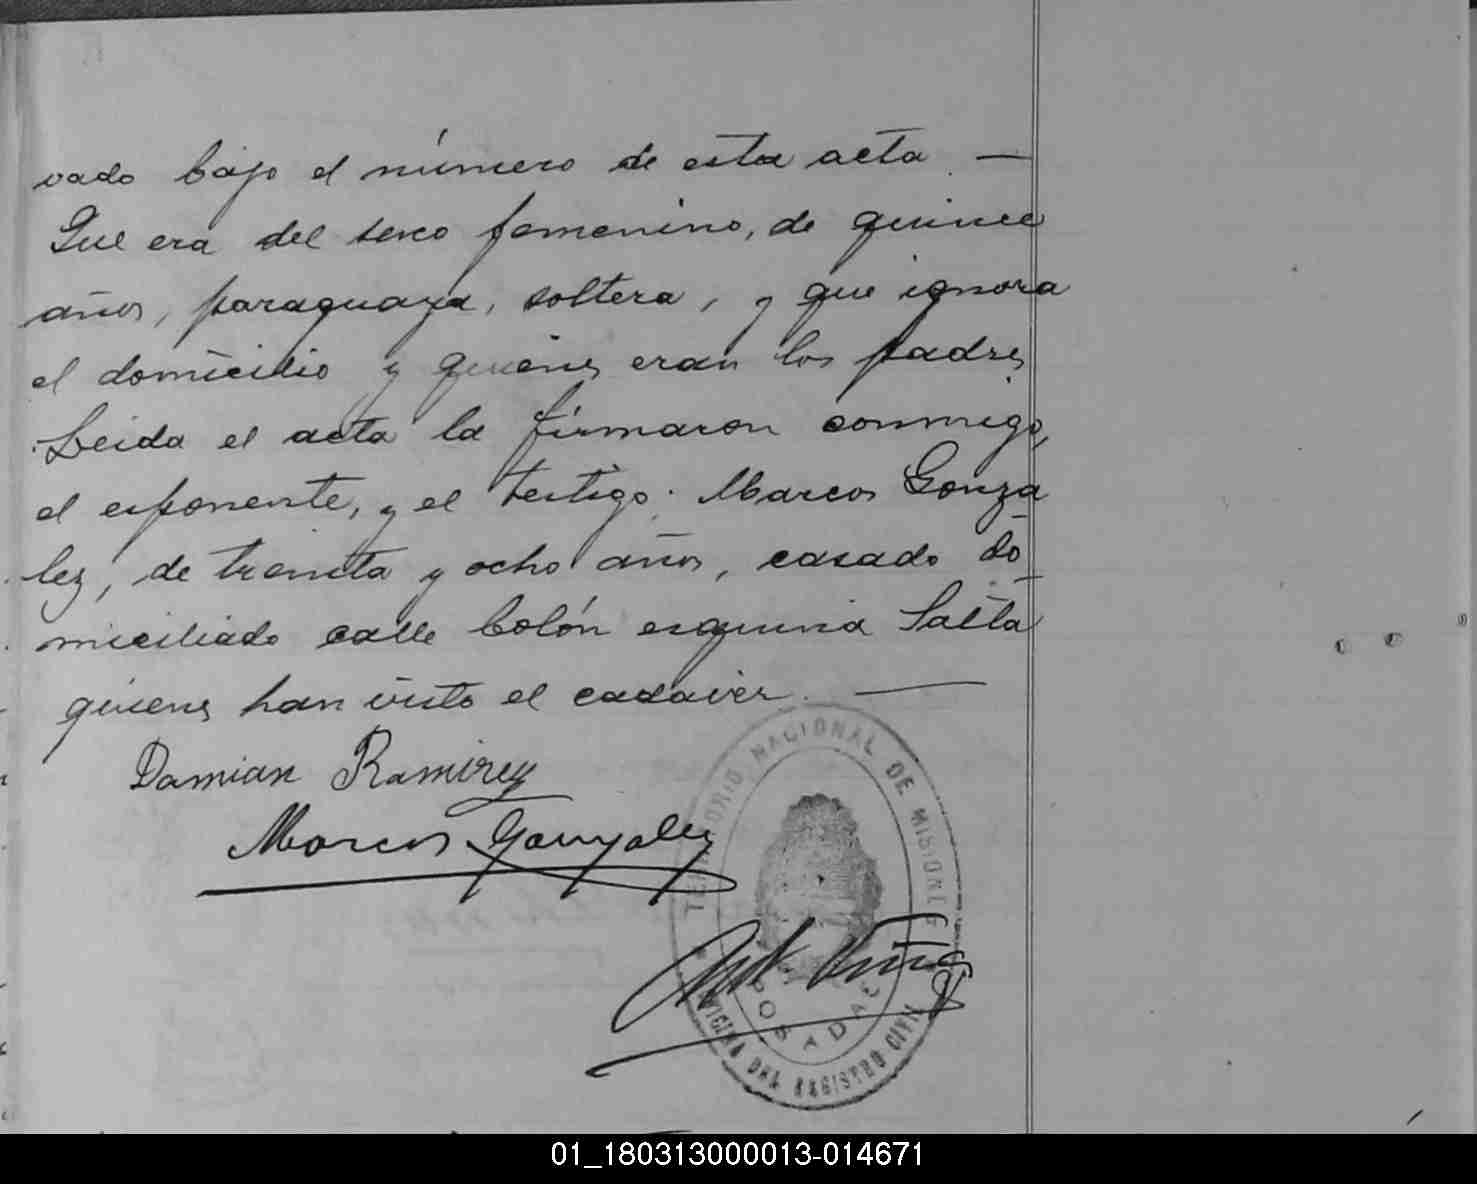 vado bajo el número de esta acta —
Que era del sexo femenino, de quince
años, paraguaya, soltera, y que ignora
el domicilio y quienes eran los padres
Leida el acta la firmaron conmigo,
el esponente, y el testigo: Marcos Gonza
lez, de treinta y ocho años, casado do
miciliado calle Colón esquina Salta
quienes han visto el cadaver. —
Damian Ramirez
Marcos Gonzalez
TERRITORIO NACIONAL DE MISIONES
POSADAS
OFICINA DEL REGISTRO CIVIL
01_180313000013-014671